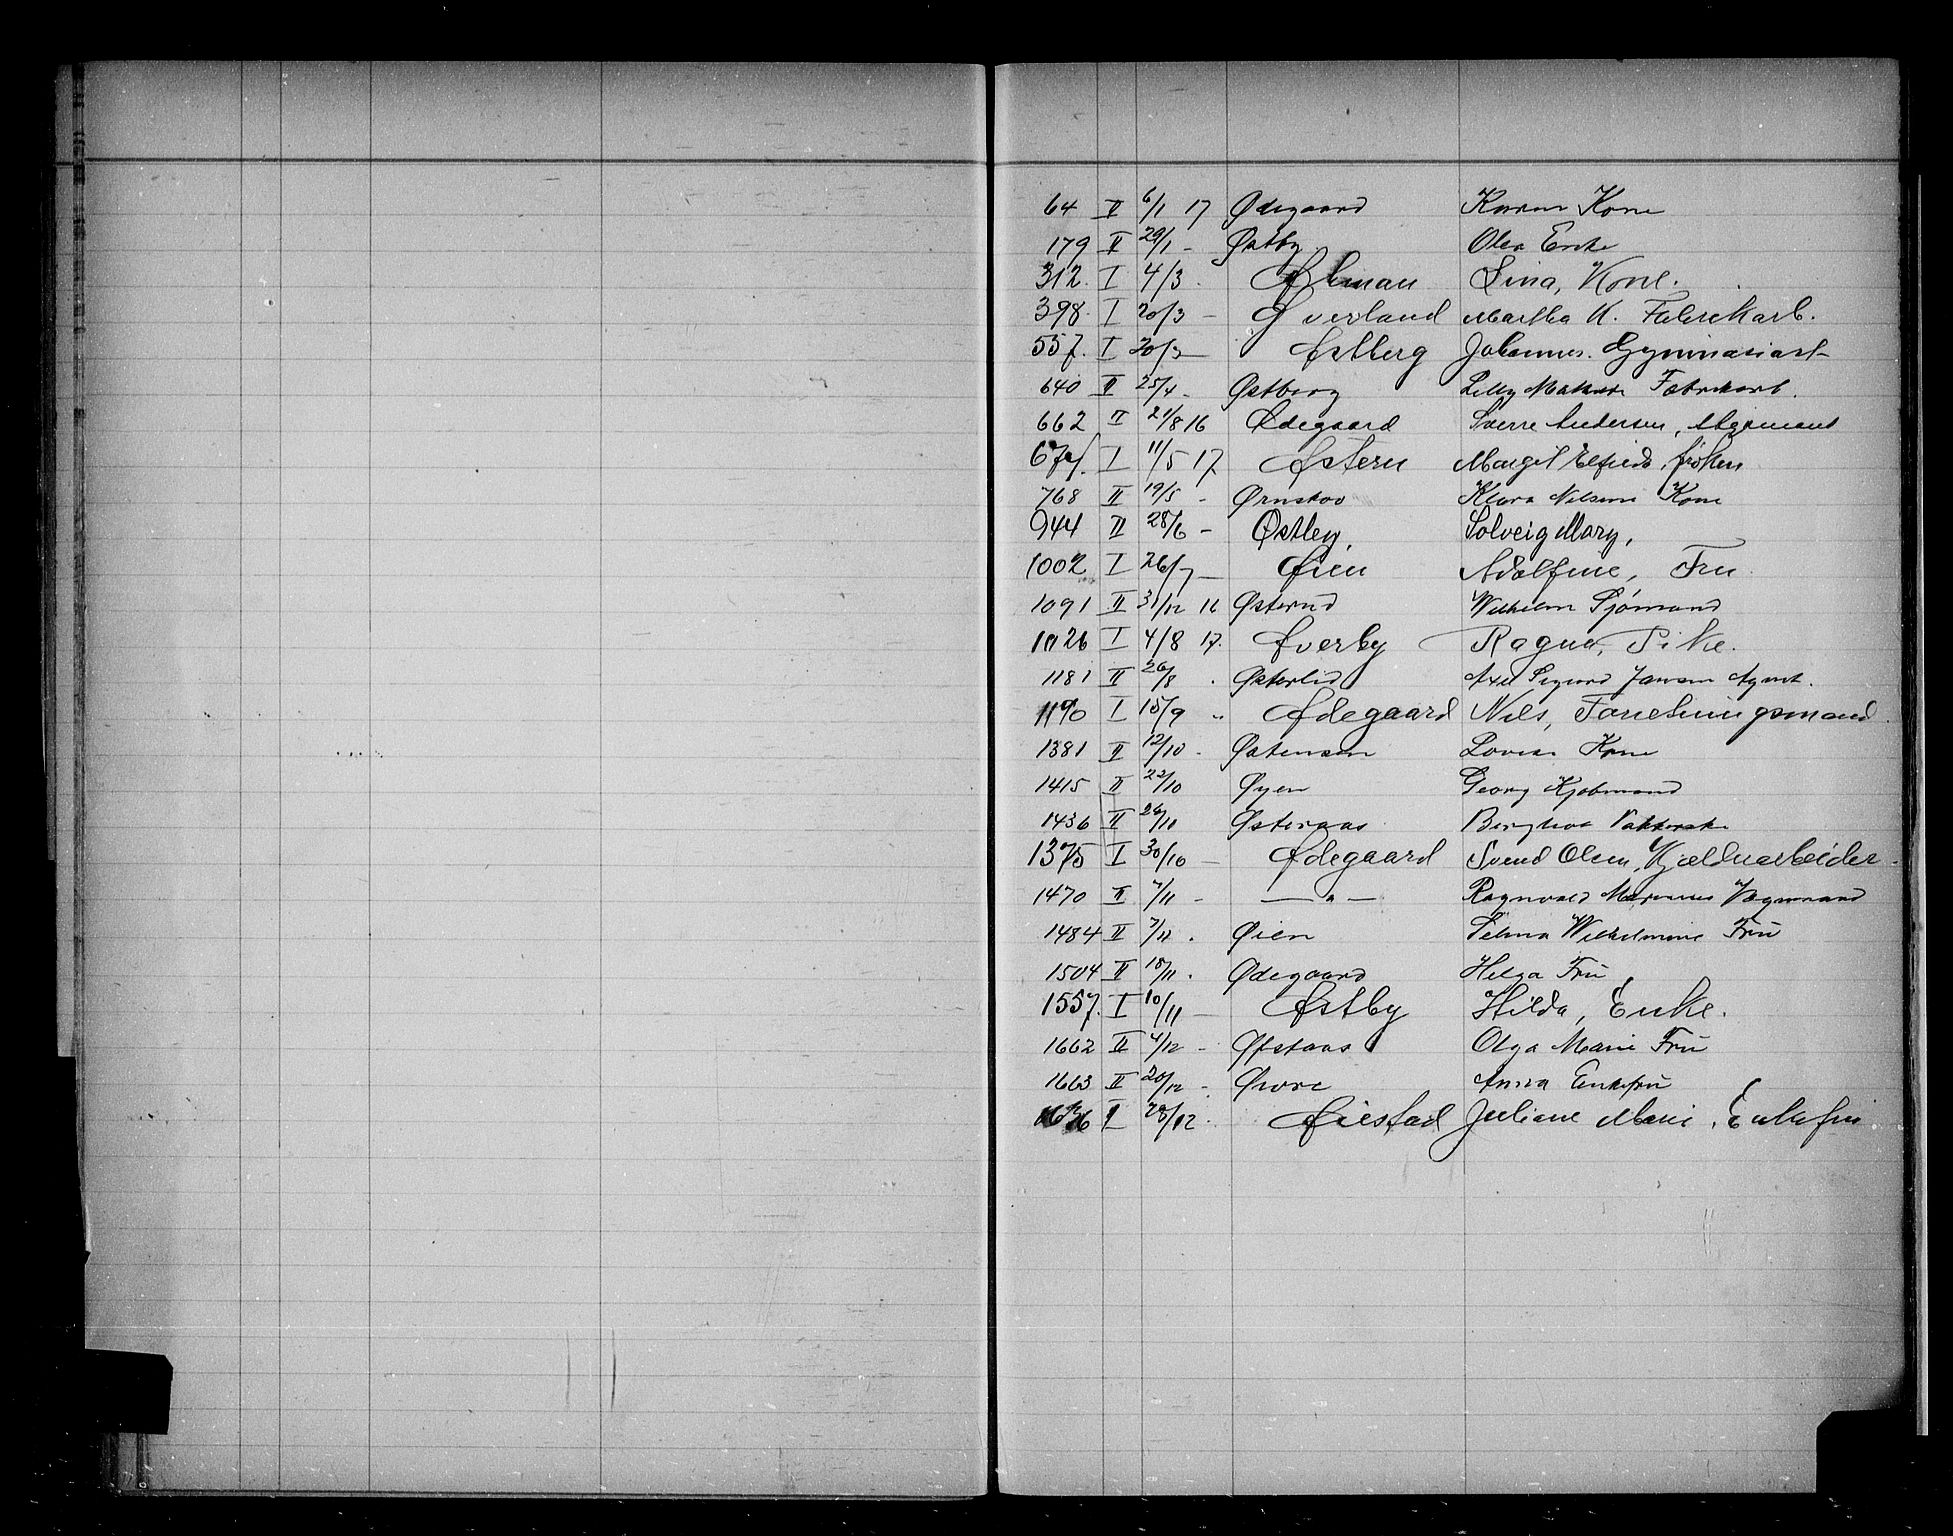 64 II 6/1 17 Ødegaard Karen Kone
179 II 29/1 - Østby Olea Enke
312. I 4/3 - Øhman Lina, Kone.
398. I 20/3 - Øverland Martha K. Fabrikarb.
557. I 30/3 - Østberg Johannes. Gymnasiast
640 II 25/4 - Østberg Lilly Fabrikarb.
662 II 21/8 16 Ødegaard Sverre Andersen,
674. I 11/5 17 Østern Margit Elfrida, frøken
768 II 19/5 - Ørnskov Klara Nilsine Kone
944 II 28/6 - Østley, Solveig Mary,
1002 I 26/7 - Øien Adolfine, Fru
1091 II 31/12 16 Østerud Wilhelm Sjømand
1026 I 4/8 17. Øverby Ragna, Pike.
1181 II 26/8 . Østerlid Axel Sigurd Jansen Agent.
1190 I 15/9 " Ødegaard Nils, Forretningsmand.
1381 II 12/10 - Østensen Lovise Kone
1415 II 22/10 Øyen Georg Kjøbmand
1436 II 26/10 Østeraas Berghea Vakterske
1375 I 30/10 - Ødegaard Svend Olsen, Kjælderarbeider -
1470 II 7/11 - —"— Ragnvald Marinus Vognmand
1484 II 7/11 . Øien Selma Wilhelmine Fru
1504 II 18/11 . Ødegaard Helga Fru
1557. I 10/11 - Østby Hilda, Enke.
1662 II 4/12 - Øfstaas Olga Marie Fru
1663 II 20/12 - Øvre Anna Enkefru
1636 I 28/12 . Øiestad Juliane Marie, Enkefru